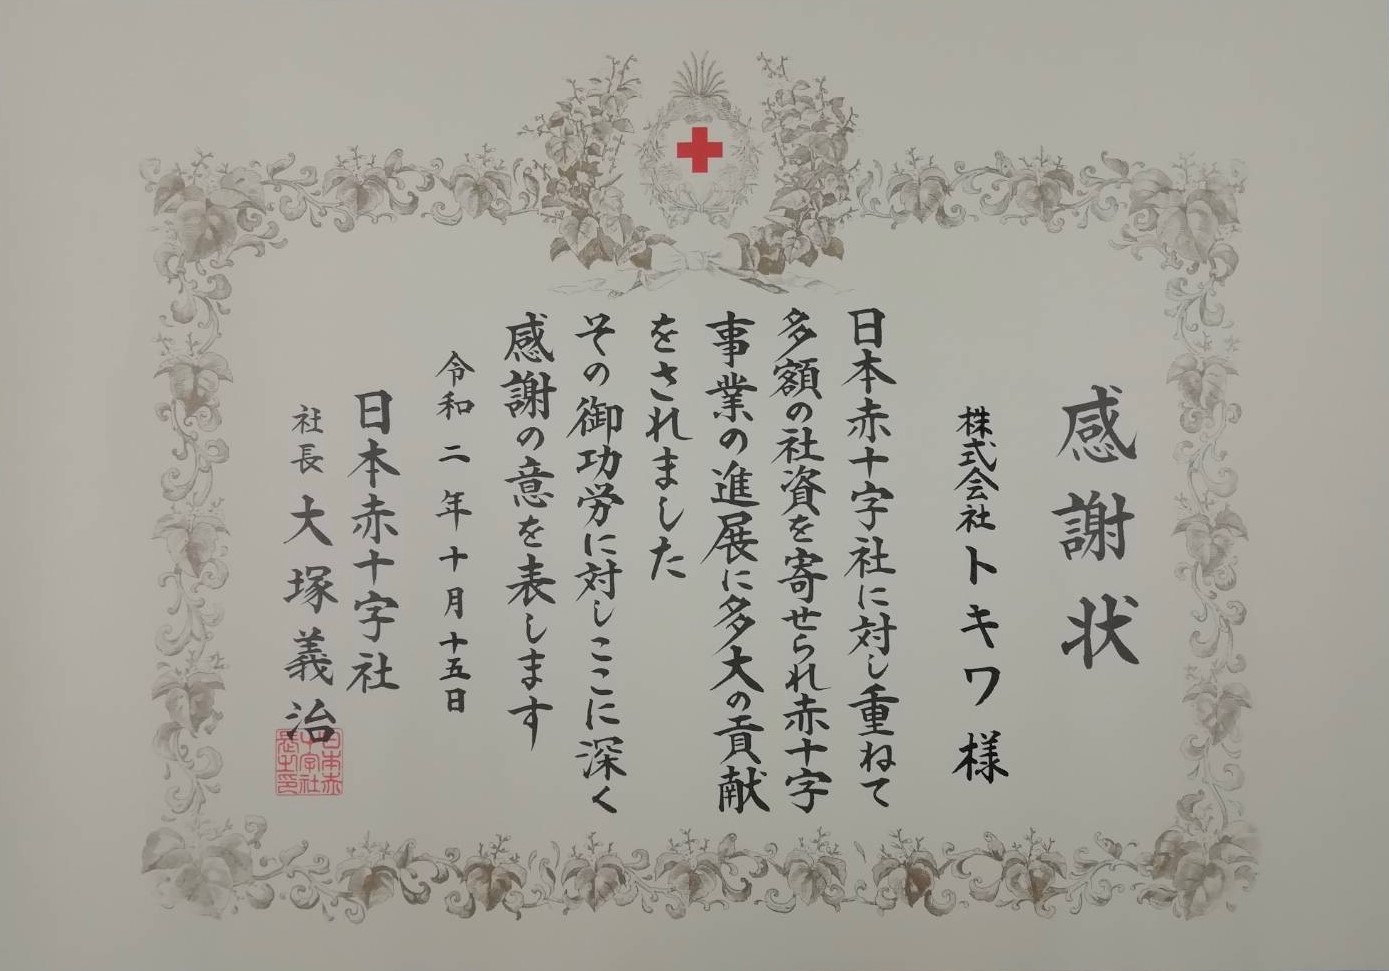 感謝状
株式会社トキワ様
日本赤十字社に対し重ねて
多額の社資を寄せられ赤十字
事業の進展に多大の貢献
をされました
その御功労に対しここに深く
感謝の意を表します
令和二年十月十五日
日本赤十字社
社長 大塚義治
日本赤
十字社
長之印